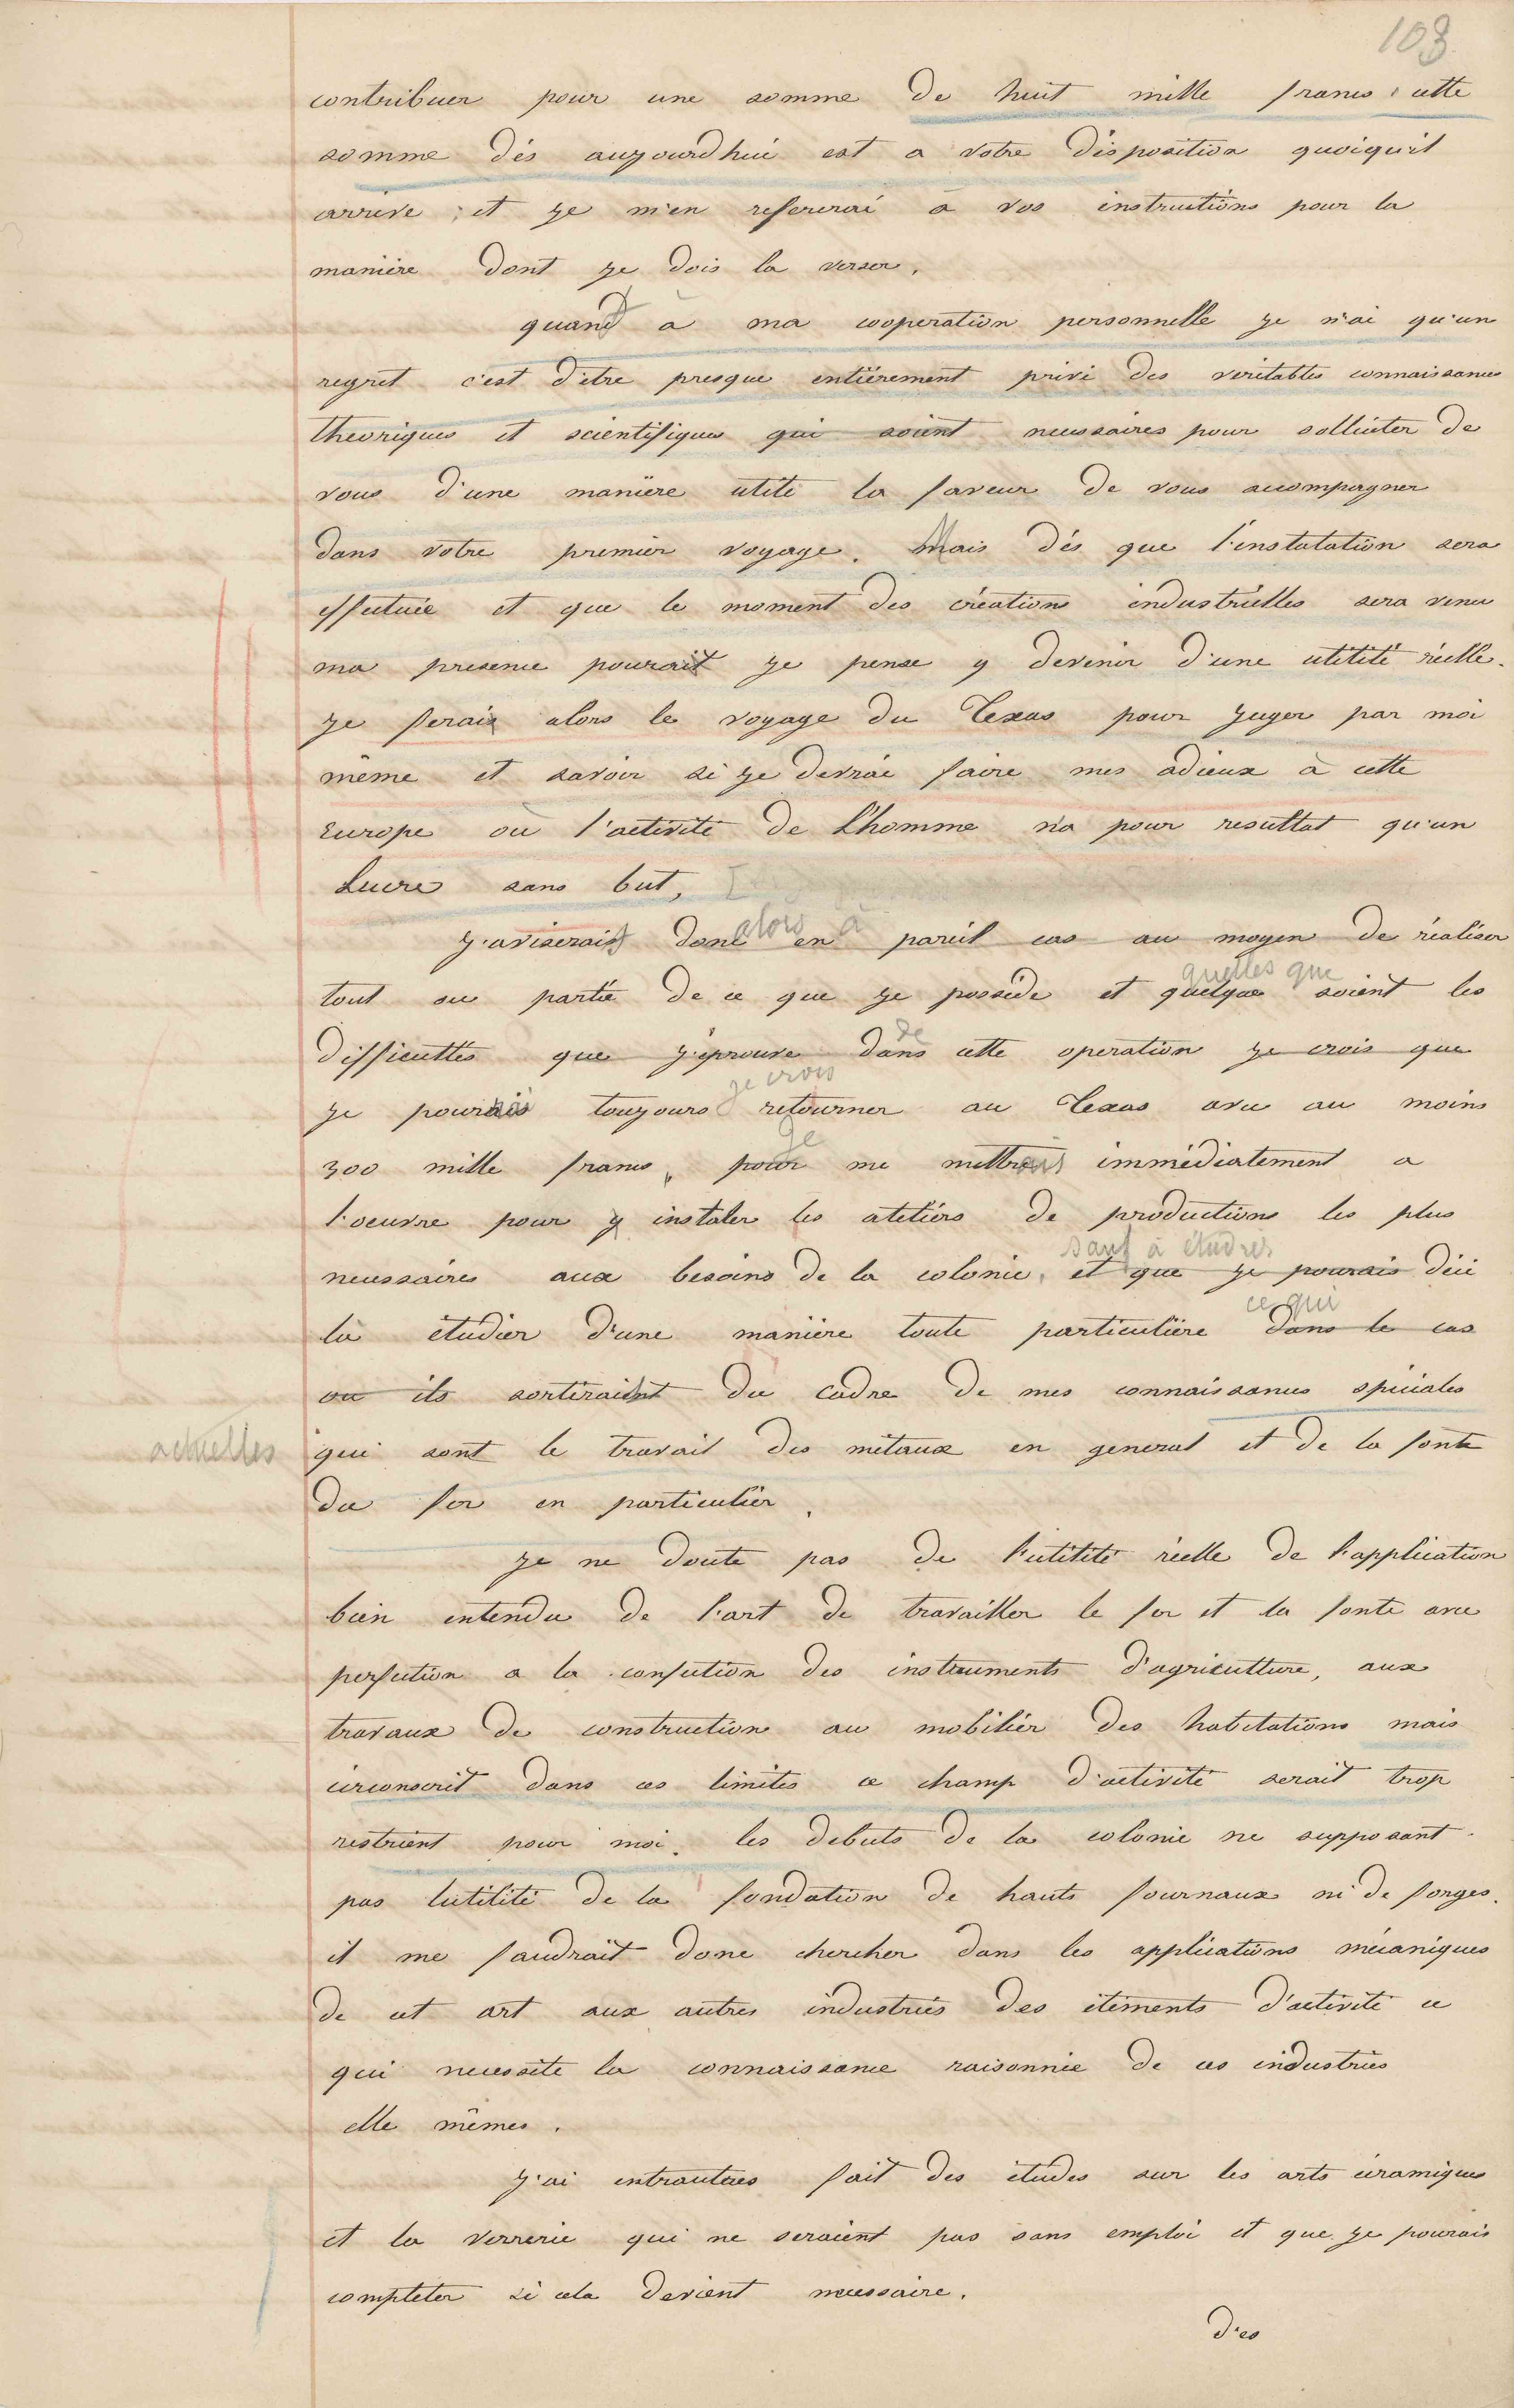 103.
contribuer pour une somme de huit mille francs, cette
somme dès aujourdhui est a votre disposition quoiquil
arrive ; et je m'en refererai a vos instructions pour la
manière dont je dois la verser,
quand à ma cooperation personnelle je n'ai qu'un
regret c'est d'etre presque entiérement privé des veritables connaissances
theoriques et scientifiques qui soient necessaires pour solliciter de
vous d'une manière utile la faveur de vous accompagner
dans votre premier voyage. Mais dès que l'instalation sera
effectuée et que le moment des créations industrielles sera venu
ma presence pourait je pense y devenir d'une utilité réelle.
je ferais alors le voyage du Texas pour juger par moi
même et savoir si je devrai faire mes adieux à cette
Europe où l'activité de L'homme n'a pour resultat qu'un
Lucre sans but,
alors à
j'aviserais donc en pareil cas au moyen de réaliser
quelles que
tout ou partie de ce que je possède et quelque soient les
de
difficultés que j'éprouve dans cette operation je crois que
je crois
je pourais toujours retourner au Texas avec au moins
je
300 mille francs, pour me mettre immédiatement a
l'oeuvre pour y instaler les ateliers de productions les plus
sauf à étudier
necessaires aux besoins de la colonie, et que je pourais dici
ce qui
là étudier d'une manière toute particulière dans le cas
ou ils sortiraient du cadre de mes connaissances spéciales
actuelles
qui sont le travail des métaux en general et de la fonte
du fer en particulier.
je ne doute pas de l'utilité réelle de l'application
bien entendu de l'art de travailler le fer et la fonte avec
perfection a la confection des instruments d'agriculture, aux
travaux de construction au mobilier des habitations mais
circonscrit dans ces limites ce champ d'activité serait trop
restrient pour moi. les debuts de la colonie ne supposant
pas lutilité de la fondation de hauts fournaux ni de forges.
il me faudrait donc chercher dans les applications mécaniques
de cet art aux autres industries des éléments d'activité ce
qui necessite la connaissance raisonnée de ces industries
elle mêmes.
j'ai entrautres fait des études sur les arts céramiques
et la verrerie qui ne seraient pas sans emploi et que je pourais
completer si cela devient necessaire.
des